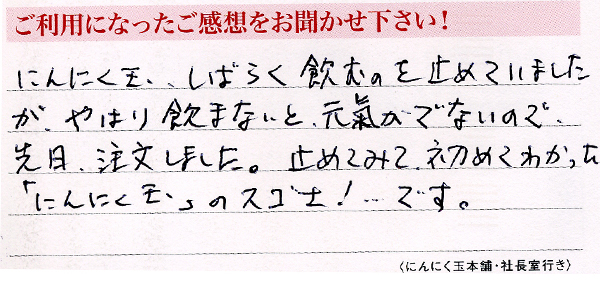 ご利用になったご感想をお聞かせ下さい!
にんにく玉、しばらく飲むのを止めていました
が、やはり飲まないと、元氣がでないので、
先日、注文しました。止めてみて、初めてわかった
「にんにく玉」のスゴさ!…です。
〈にんにく玉本舗・社長室行き〉